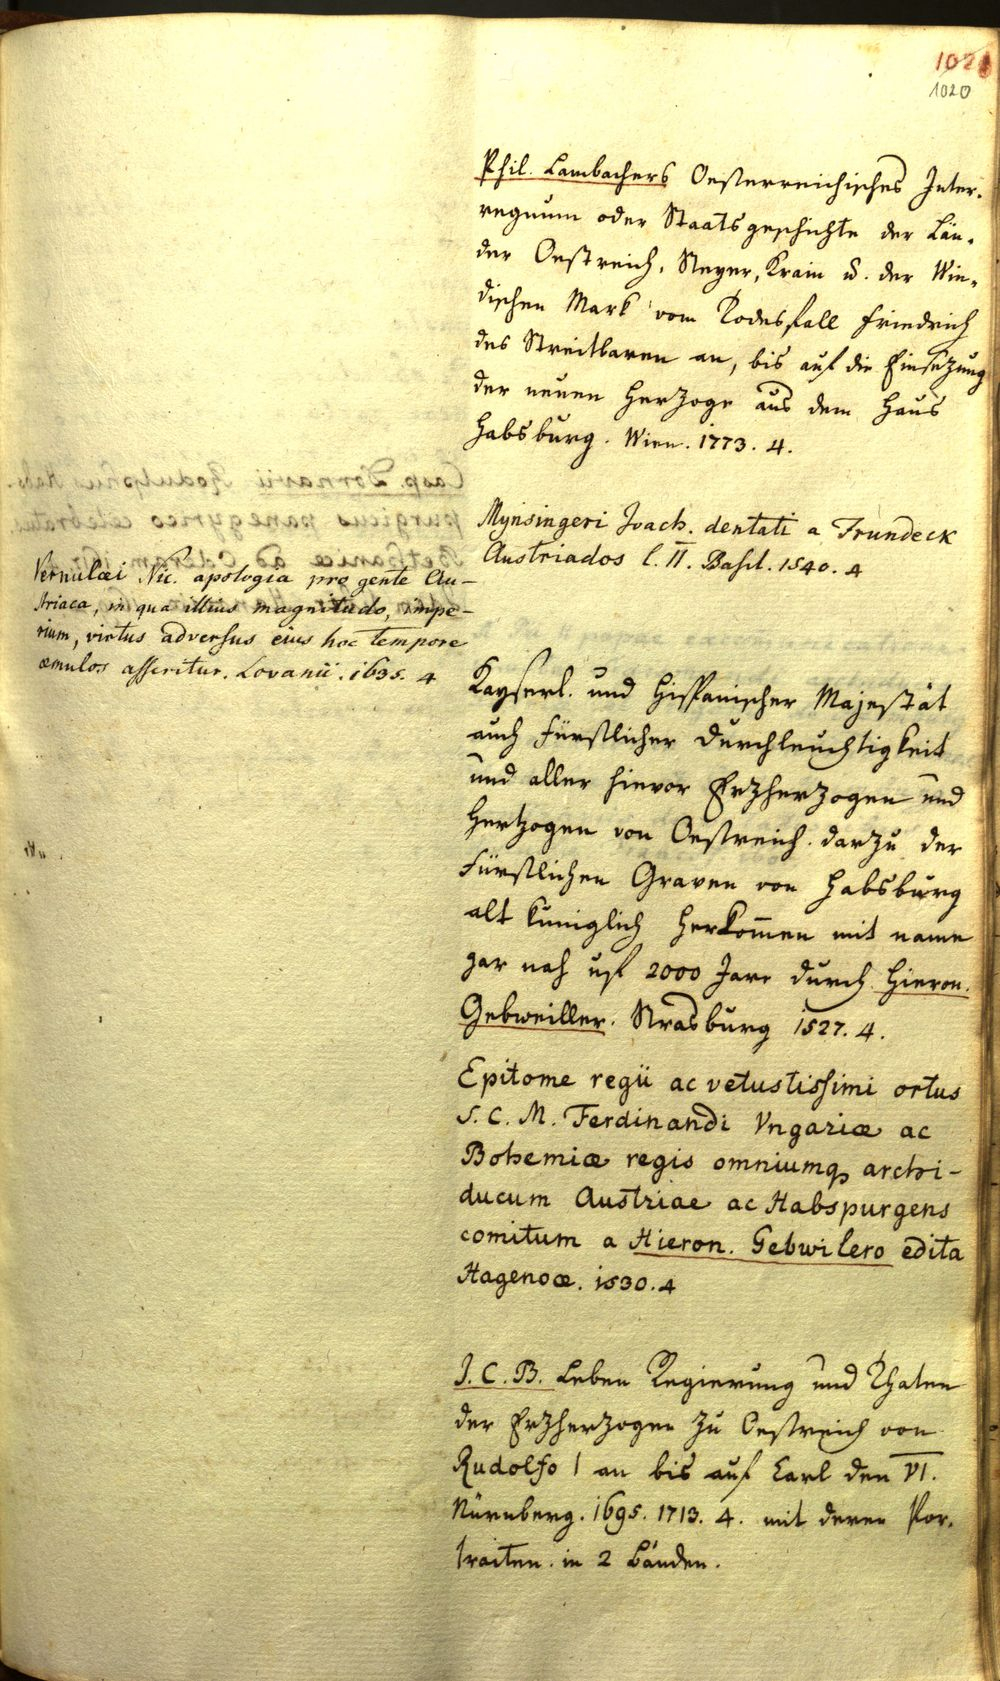 1021
1020
Phil. Lambachers Oesterreichisches Inter-
regnum oder Staatsgeschichte der Län-
der Oestreich, Steyer, Krain u. der Win-
dischen Mark vom Todesfall Friedrich
des Streitbaren an, bis auf die Einsezung
der neuen Herzoge aus dem Haus
Habsburg. Wien. 1773. 4.
Mynsingeri Joach. dentati a Frundeck
Austriados l. II. Basil. 1540. 4
Vernulæi Nic. apologia pro gente Au-
striaca, in qua illius magnitudo, impe-
rium, virtus adversus ejus hoc tempore
æmulos asseritur. Lovanii. 1635. 4
Kayserl. und Hispanischer Majestät
auch Fürstlicher Durchleuchtigkeit
und aller hievor Erzherzogen und
Hertzogen von Oestreich. darzu der
Fürstlichen Graven von Habsburg
alt kuniglich Herkom̄en mit name
gar nah uf 2000 Jare durch Hieron.
Gebweiller. Strasburg 1527. 4.
Epitome regii ac vetustissimi ortus
S. C. M. Ferdinandi Vngariæ ac
Bohemiæ regis omniumq archi-
ducum Austriae ac Habspurgens
comitum a Hieron. Gebwilero edita
Hagenoæ. 1530. 4
J. C. B. Leben Regierung und Thaten
der Erzherzogen zu Oestreich von
Rudolfo I an bis auf Carl den VI.
Nürnberg. 1695. 1713. 4. mit deren Por-
traiten. in 2 Bänden.